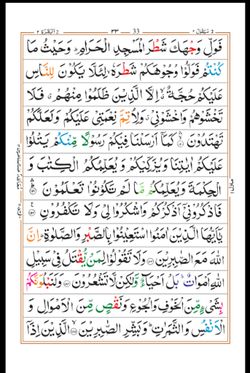 ٣٣ 33
فَوَلِّ وَجْهَكَ شَطْرَ الْمَسْجِدِ الْحَرَامِ ؕ وَحَيْثُ مَا
كُنْتُمْ فَوَلُّوْا وُجُوْهَكُمْ شَطْرَهٗ ۙ لِئَلَّا يَكُوْنَ لِلنَّاسِ
عَلَيْكُمْ حُجَّةٌ ۙ اِلَّا الَّذِيْنَ ظَلَمُوْا مِنْهُمْ ۗ فَلَا
تَخْشَوْهُمْ وَاخْشَوْنِيْ ۗ وَلِاُتِمَّ نِعْمَتِيْ عَلَيْكُمْ وَلَعَلَّكُمْ
تَهْتَدُوْنَ ۙ كَمَاۤ اَرْسَلْنَا فِيْكُمْ رَسُوْلًا مِّنْكُمْ يَتْلُوْا
عَلَيْكُمْ اٰيٰتِنَا وَيُزَكِّيْكُمْ وَيُعَلِّمُكُمُ الْكِتٰبَ وَ
الْحِكْمَةَ وَيُعَلِّمُكُمْ مَّا لَمْ تَكُوْنُوْا تَعْلَمُوْنَ
فَاذْكُرُوْنِيْۤ اَذْكُرْكُمْ وَاشْكُرُوْا لِيْ وَلَا تَكْفُرُوْنِ
يٰۤاَيُّهَا الَّذِيْنَ اٰمَنُوا اسْتَعِيْنُوْا بِالصَّبْرِ وَالصَّلٰوةِ ؕ اِنَّ
اللّٰهَ مَعَ الصّٰبِرِيْنَ وَلَا تَقُوْلُوْا لِمَنْ يُّقْتَلُ فِيْ سَبِيْلِ
اللّٰهِ اَمْوَاتٌ ؕ بَلْ اَحْيَآءٌ وَّلٰكِنْ لَّا تَشْعُرُوْنَ وَلَنَبْلُوَنَّكُمْ
بِشَيْءٍ مِّنَ الْخَوْفِ وَالْجُوْعِ وَنَقْصٍ مِّنَ الْاَمْوَالِ وَ
الْاَنْفُسِ وَالثَّمَرٰتِ ؕ وَبَشِّرِ الصّٰبِرِيْنَ الَّذِيْنَ اِذَاۤ